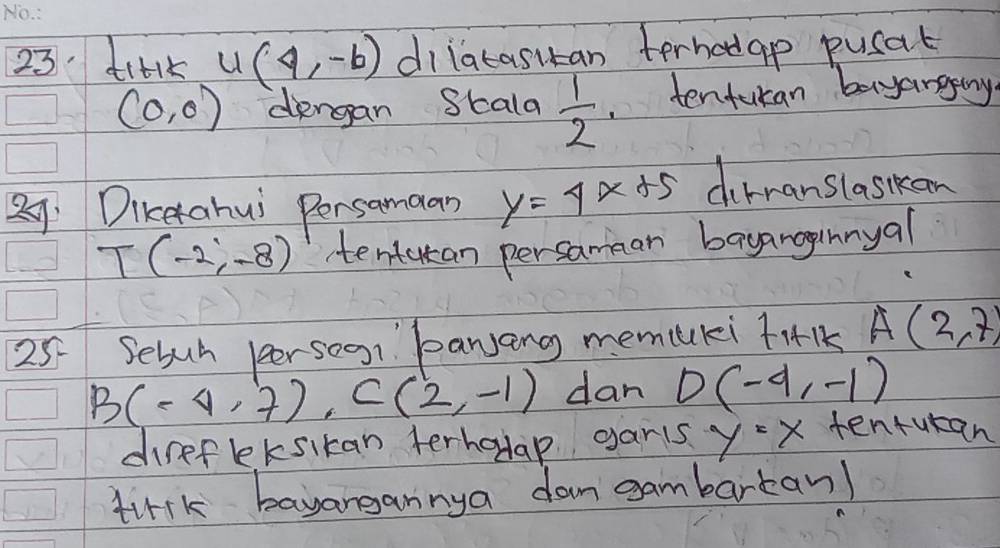 No.:
23. titik U(4,-6) dilatasikan terhadap pusat
(0,0) dengan Skala 1/2, tentukan bayangany
24. Diketahui Persamaan y= 4x+5 ditranslasikan
T(-2,-8) tentukan persamaan bayangannya!
25. Sebuh persegi panjang memiliki titik A(2,7)
B(-4,7), C(2,-1) dan D(-4,-1)
direfleksikan terhadap garis y=x tentukan
titik bayangannya dan gambarkan!